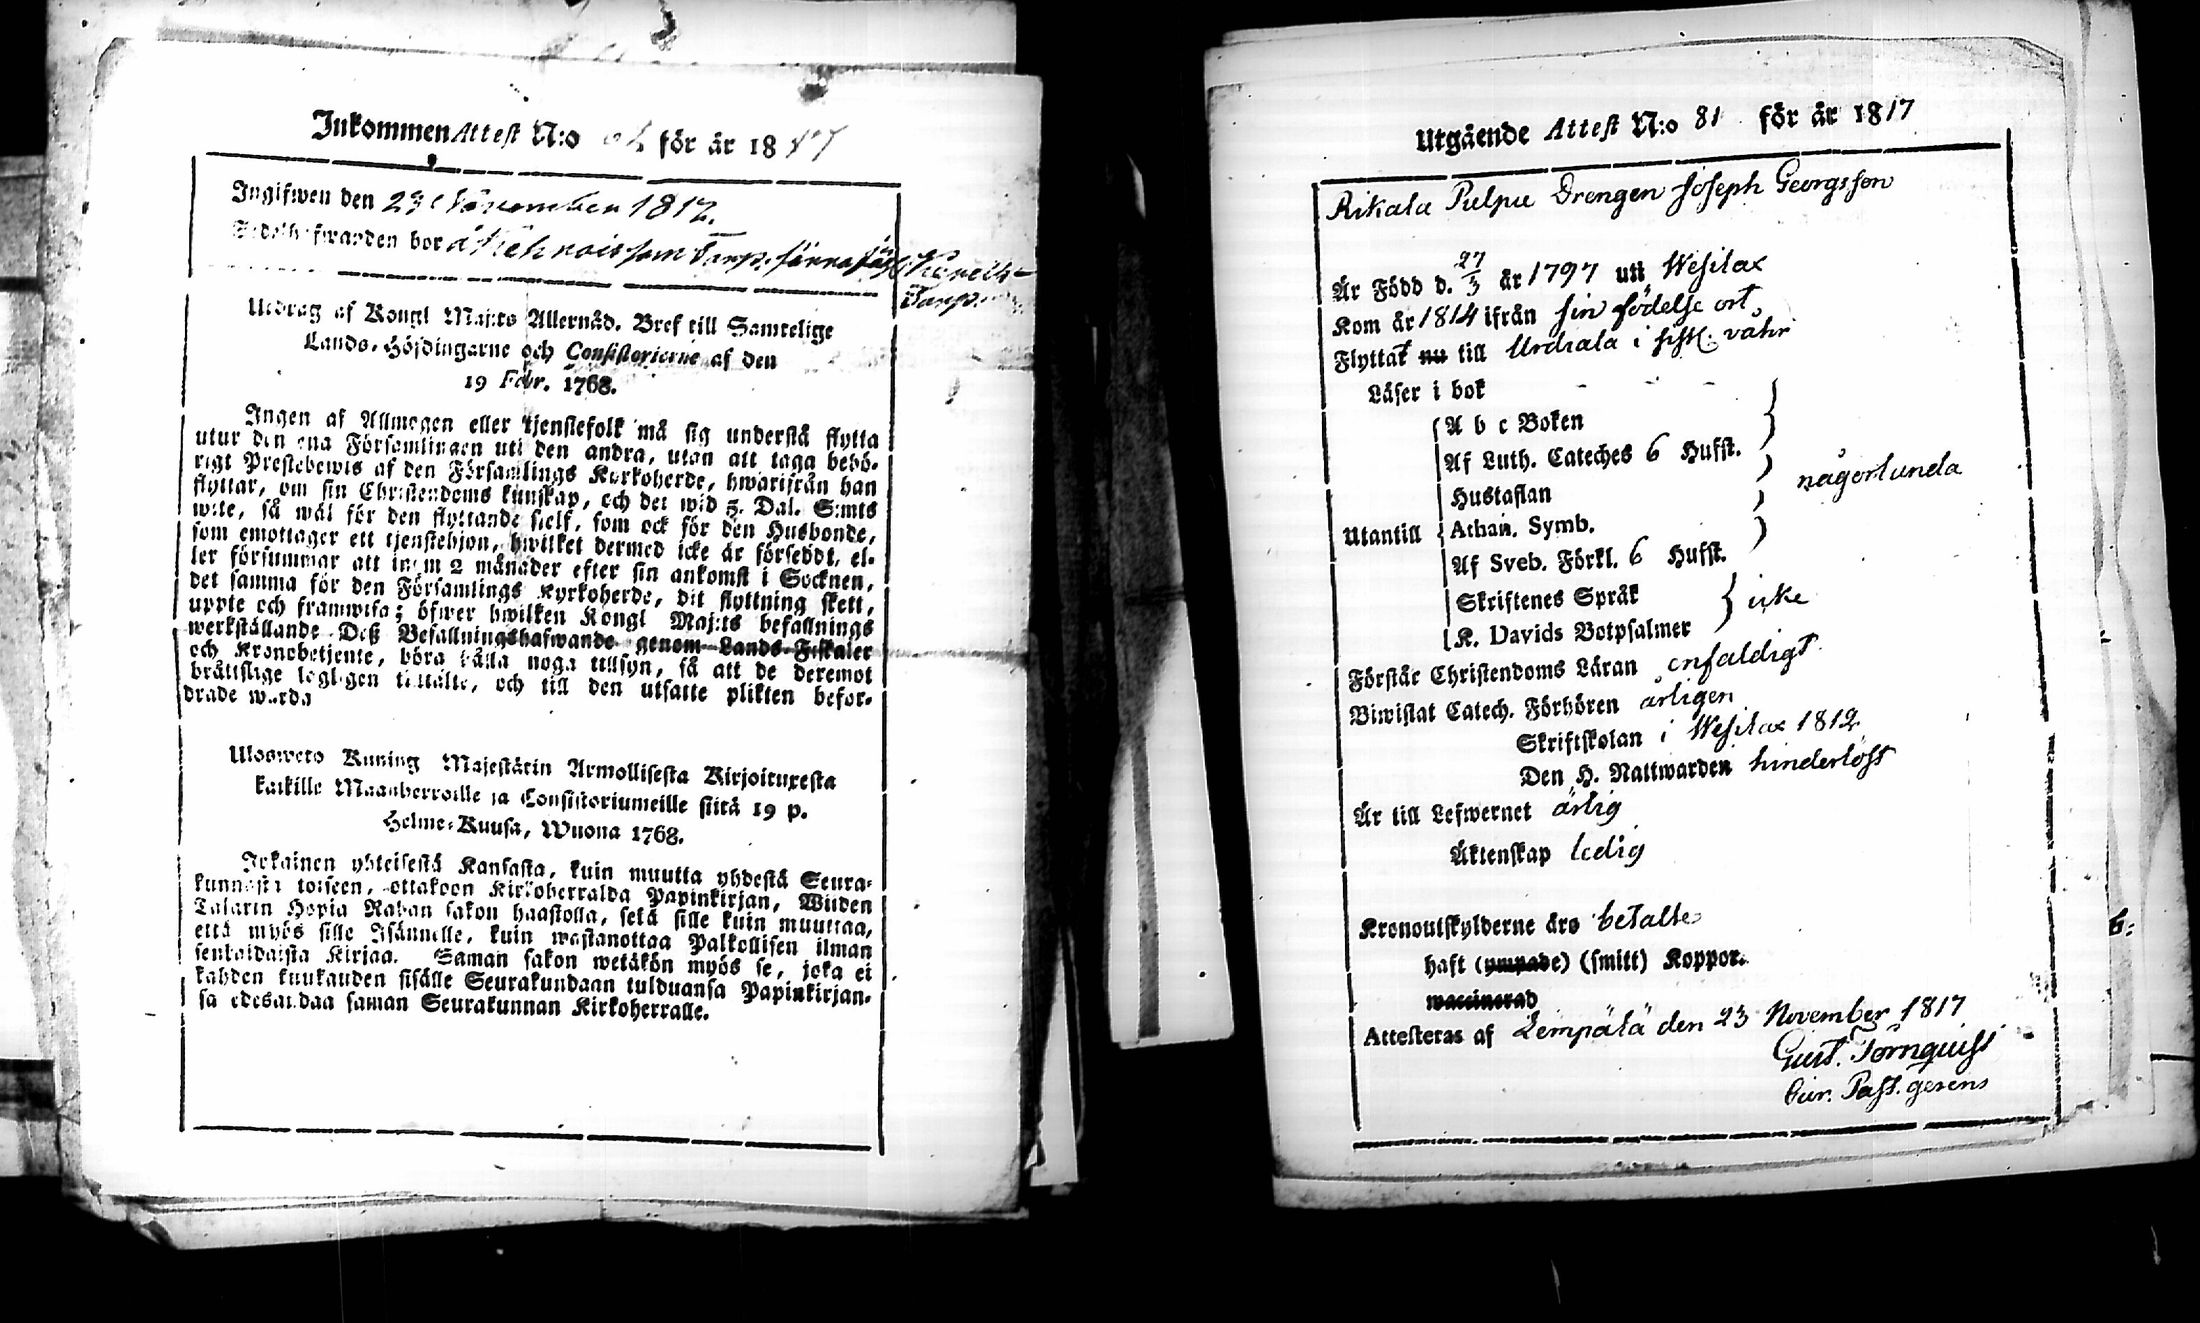 Inkommen Attest N:o för år 18
Ingifwen den 23 November 1817.
bor å
Utdrag af Kongl Maj:ts Allernåd. Bref till Samtelige
Lands-Höfdingarne och Consistorierne af den
19 Febr. 1768.
Ingen af Allmogen eller tjenstefolk må sig understå flytta
utur den ena Församlingen uti den andra, utan att taga behö-
rigt Prestebewis af den Församlings Kyrkoherde, hwarifrån han
flyttar, om sin Christendoms kunskap, och det wid 3. Dal. S:mts
wite, så wäl för den flyttande sielf, som ock för den Husbonde,
som emottager ett tjenstehjon, hwilket dermed icke är försedt, el-
ler försummar att inom 2 månader efter sin ankomst i Socknen,
det samma för den Församlings Kyrkoherde, dit flyttning skett,
uppte och framwisa; öfwer hwilken Kongl Maj:ts befallnings
werkställande Deß Befallningshafwande genom Lands-Fiskaler
och Kronobetjente, böra hålla noga tillsyn, så att de deremot
bråttslige lagligen tilltalte, och till den utsatte plikten befor-
drade warda
Ulosweto Kuning Majestätin Armollisesta Kirjoituxesta
kaikille Maanherroille ja Consistoriumeille siitä 19 p.
Helme-Kuusa, Wuona 1768.
Jokainen yhteisestä Kansasta, kuin muutta yhdestä Seura-
kunnasta toiseen, ottakoon Kirkoherralda Papinkirjan, Wiiden
Talarin Hopia Rahan sakon haastolla, sekä sille kuin muuttaa,
että myös sille Isännelle, kuin wastanottaa Palkollisen ilman
senkaldaista Kirjaa. Saman sakon wetäkön myös se, joka ei
kahden kuukauden sisälle Seurakundaan tulduansa Papinkirjan-
sa edesandaa saman Seurakunnan Kirkoherralle.
Utgående Attest N:o 81 för år 1817
Rikala Pulpu Drengen Joseph Georgsson
Är Född d. 27/3 år 1797 uti Wesilax
Kom år 1814 ifrån sin födelse ort
Flyttat nu till Urdiala i sistl. våhr
Läser i bok - - -
A b c Boken
Af Luth. Cateches 6 Hufst.
Hustaflan
någorlunda
Utantill Athan. Symb.
Af Sveb. Förkl. 6 Hufst.
Skriftenes Språk
icke
K. Davids Botpsalmer
Förstår Christendoms Läran enfaldigt
Biwistat Catech. Förhören årligen
Skriftskolan i Wesilax 1812
Den H. Nattwarden hinderlöst
Är till Lefwernet ärlig
Äktenskap ledig
Kronoutskylderne äro betalte
haft (ympade) (smitt) Koppor.
waccinerad
Attesteras af Lempälä den 23 November 1817
Gust. Törnquist
Cur. Past. gerens